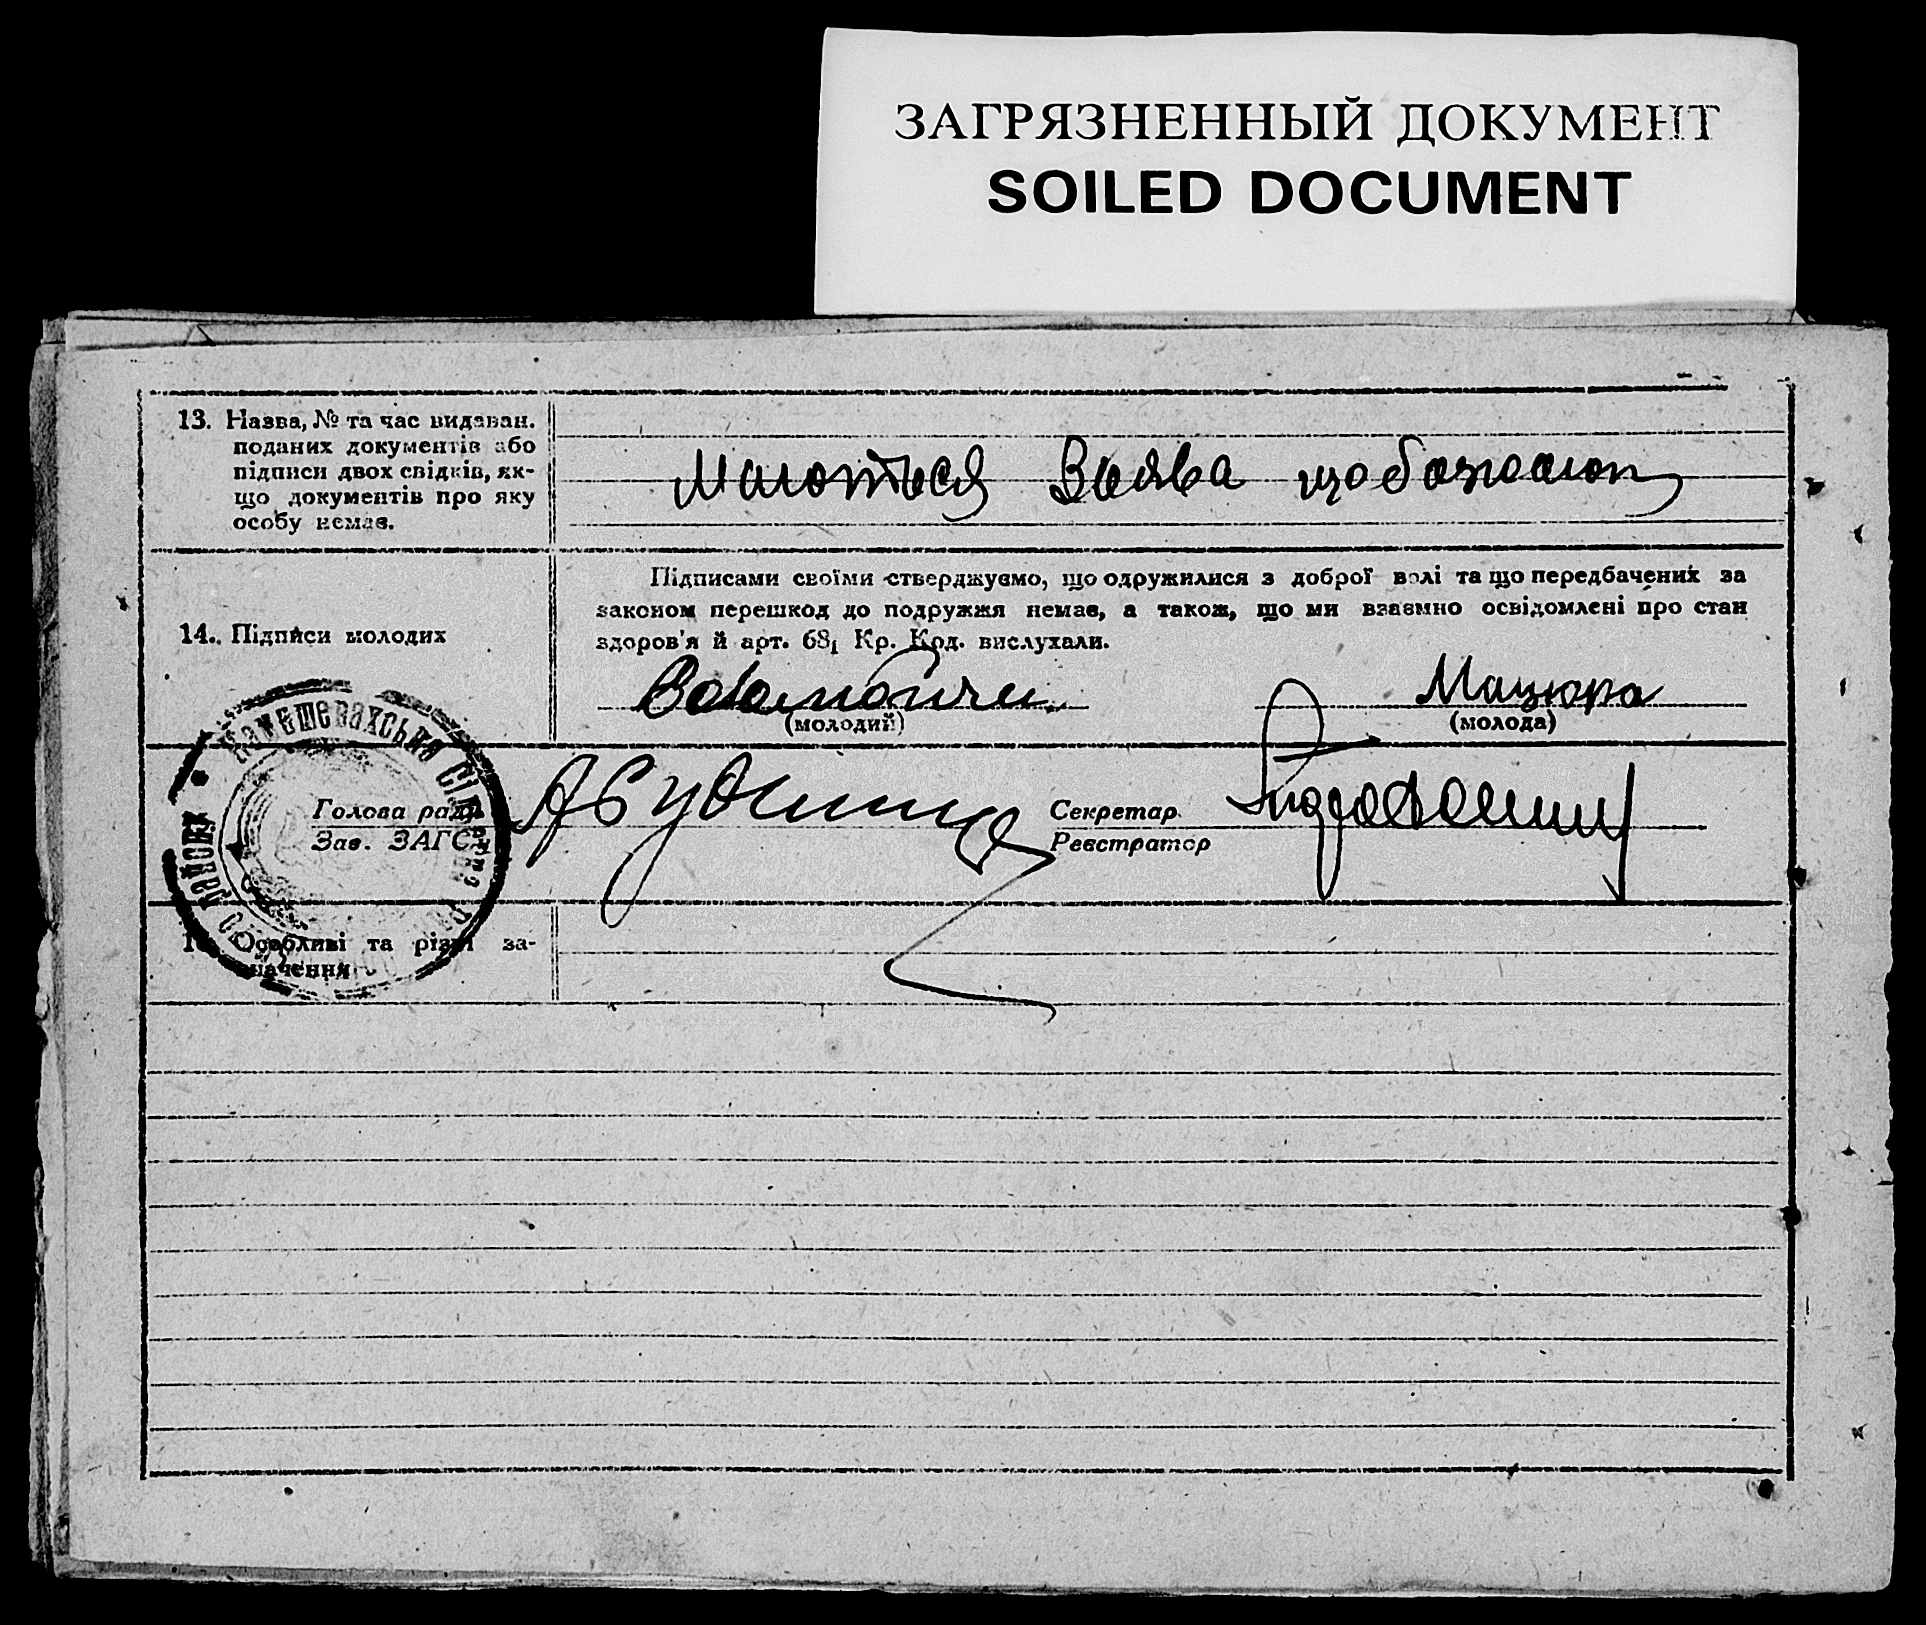 ЗАГРЯЗНЕННЫЙ ДОКУМЕНТ
SOILED DOCUMENT
13. Назва, № та час видаван.
поданих документів або
підписи двох свідків, як-
що документів про яку
особу немає.
Маються Заява
Підписами своїми стверджуємо, що одружилися з доброї волі та що передбачених за
законом перешкод до подружжя немає, а також, що ми взаємно освідомлені про стан
здоров'я й арт. 68₁ Кр. Код. вислухали.
14. Підписи молодих
Мацюра
(молодий)
(молода)
Камешевахська
Голова ради
Секретар
Зав. ЗАГС
Реєстратор
Особливі та різні за-
значення